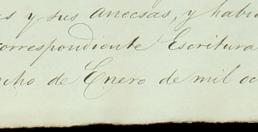 y sus anecsas, y habi
correspondiente Escritura
cho de Enero de mil oc